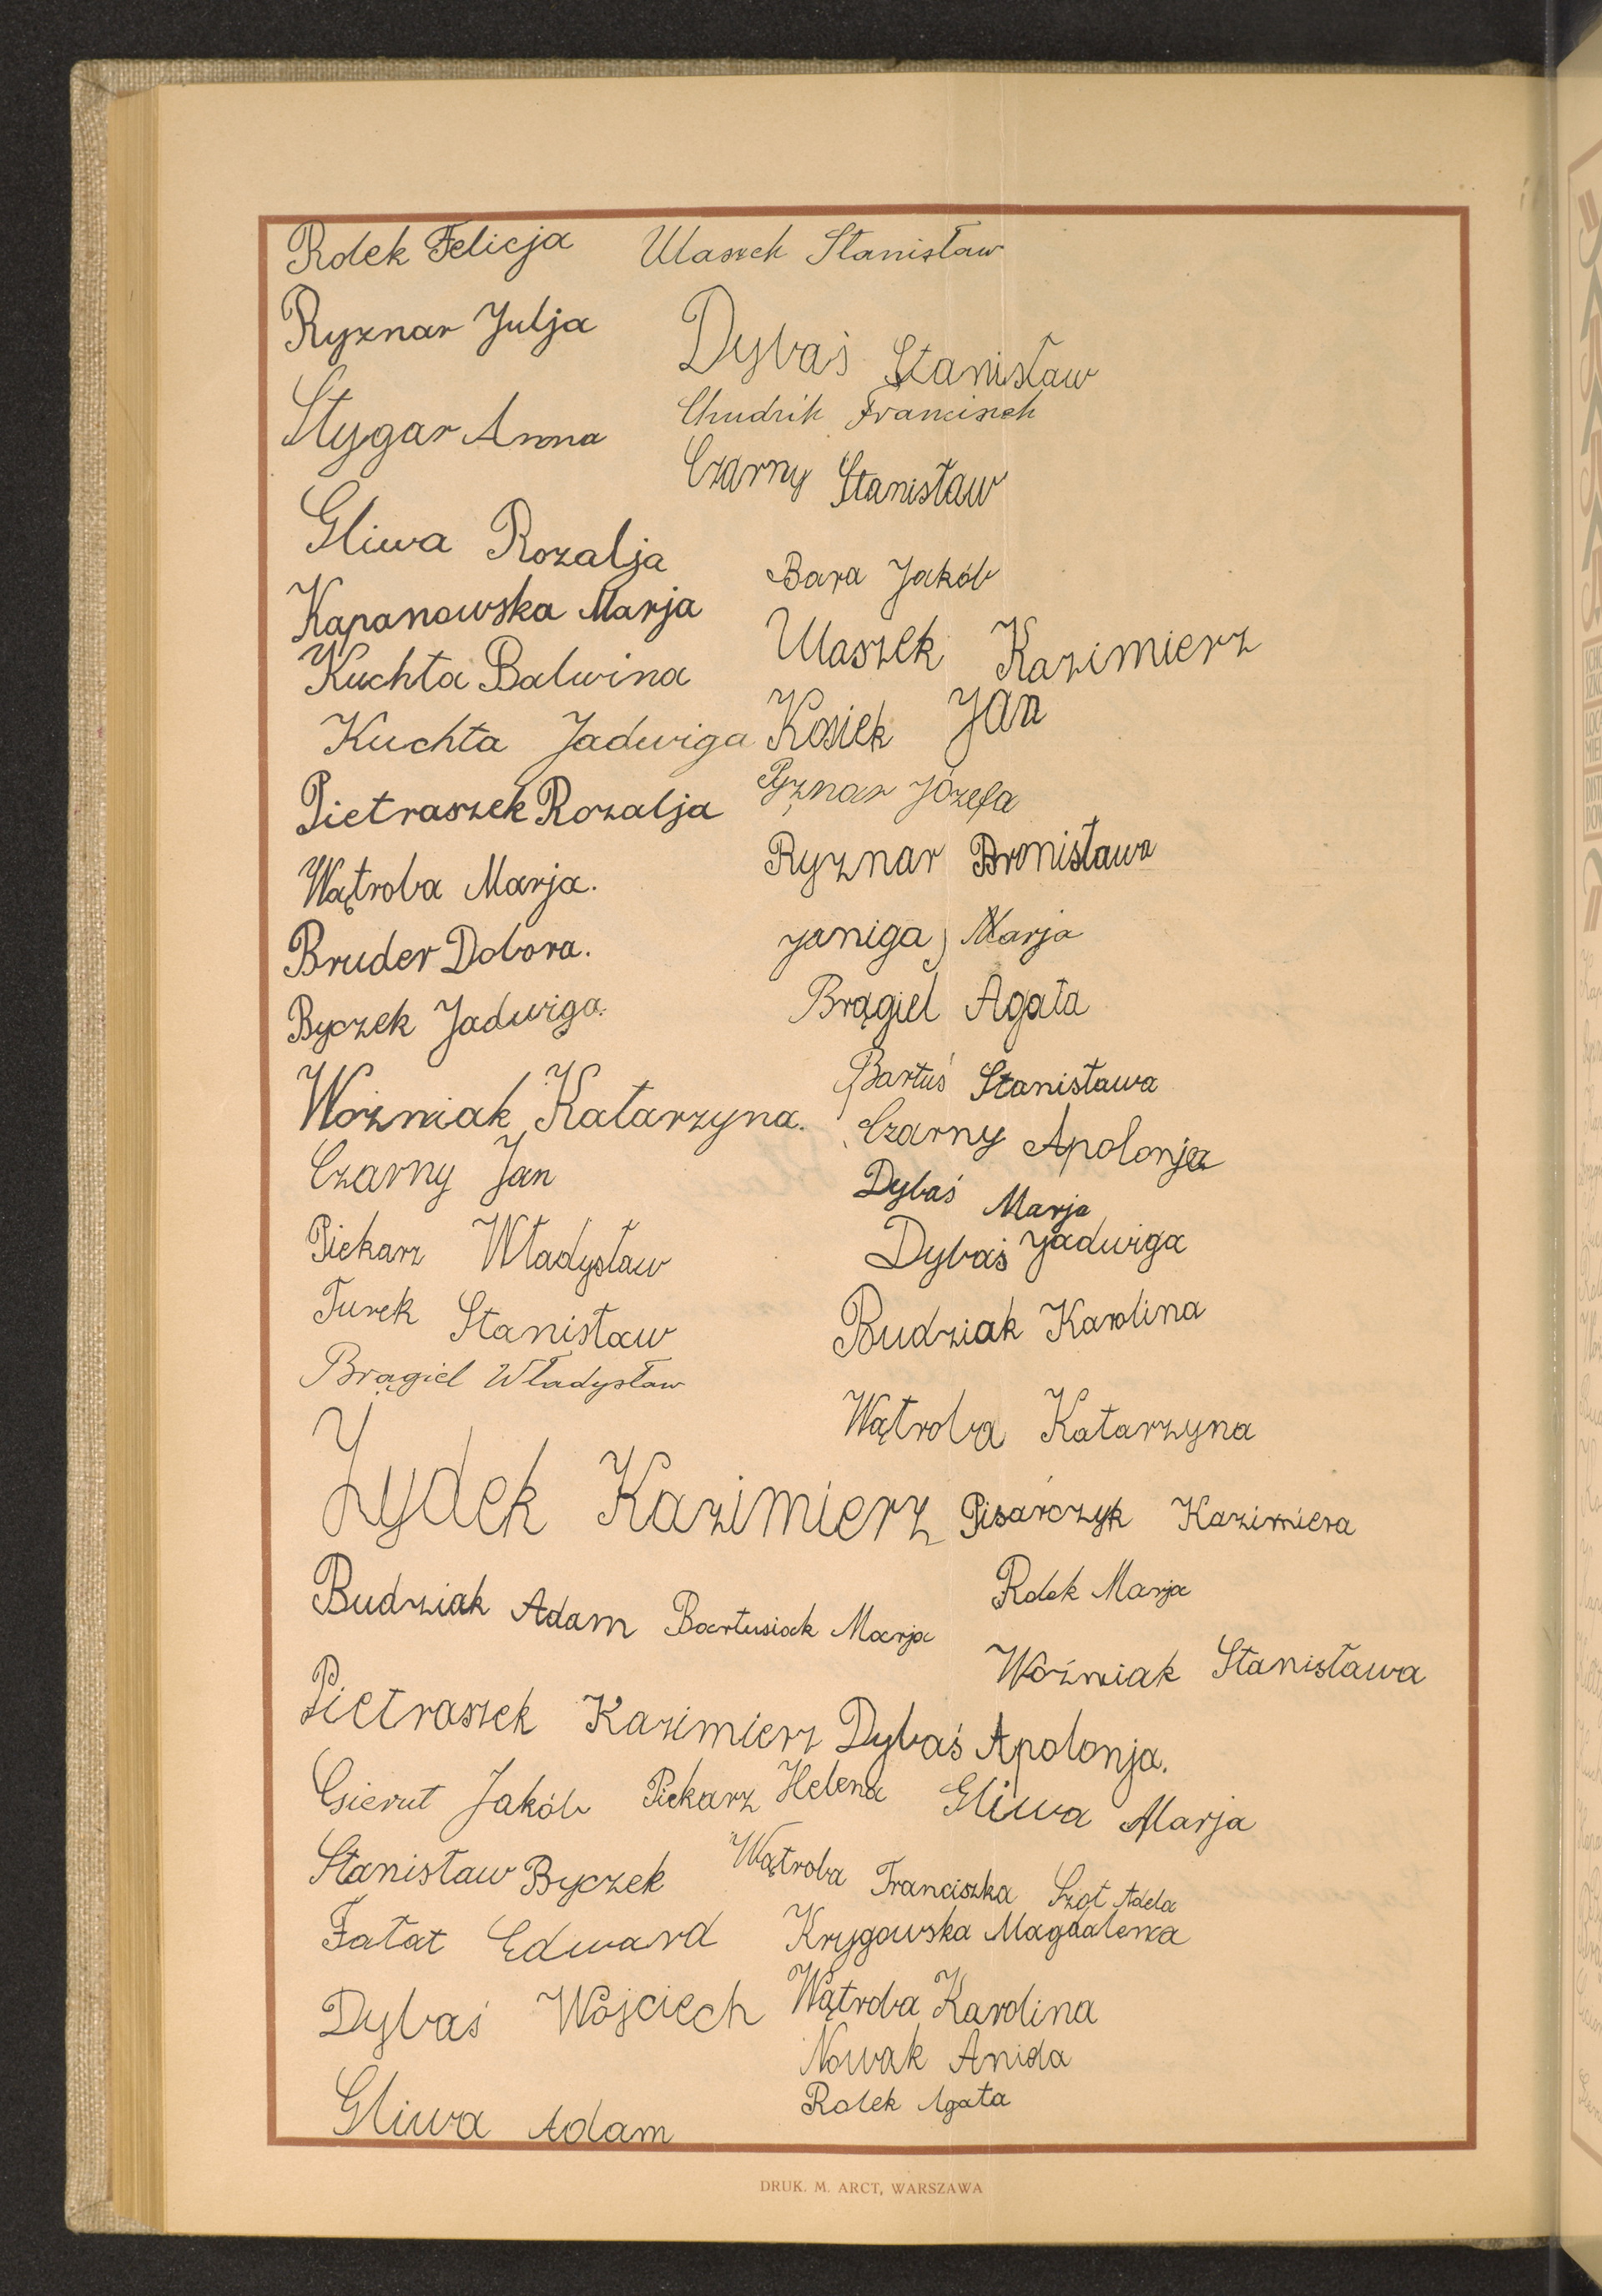 Rolek Felicja
Ryznar Julja
Stygar Anna
Gliwa Rozalja
Kapanowska Marja
Kuchta Balwina
Kuchta Jadwiga
Pietraszek Rozalja
Wątroba Marja.
Bruder Dobora.
Byczek Jadwiga.
Woźniak Katarzyna.
Czarny Jan
Piekarz Władysław
Turek Stanisław
Brągiel Władysław
Żydek Kazimierz
Budziak Adam
Pietraszek Kazimierz
Gierut Jakób
Stanisław Byczek
Fałat Edward
Dybaś Wojciech
Gliwa Adam
Ulaszek Stanisław
Dybaś Stanisław
Chudzik Franciszek
Czarny Stanisław
Bara Jakób
Ulaszek Kazimierz
Kosiek Jan
Pyznar Józefa
Ryznar Bronisława
Janiga Marja
Brągiel Agata
Bartuś Stanisława
Czarny Apolonja
Dybaś Marja
Dybaś Jadwiga
Budziak Karolina
Wątroba Katarzyna
Pisarczyk Kazimiera
Rolek Marja
Bartusiak Marja
Woźniak Stanisława
Dybaś Apolonja.
Piekarz Helena
Gliwa Marja
Wątroba Franciszka
Szot Adela
Krygowska Magdalena
Wątroba Karolina
Nowak Anida
Rolek Agata
DRUK. M. ARCT, WARSZAWA